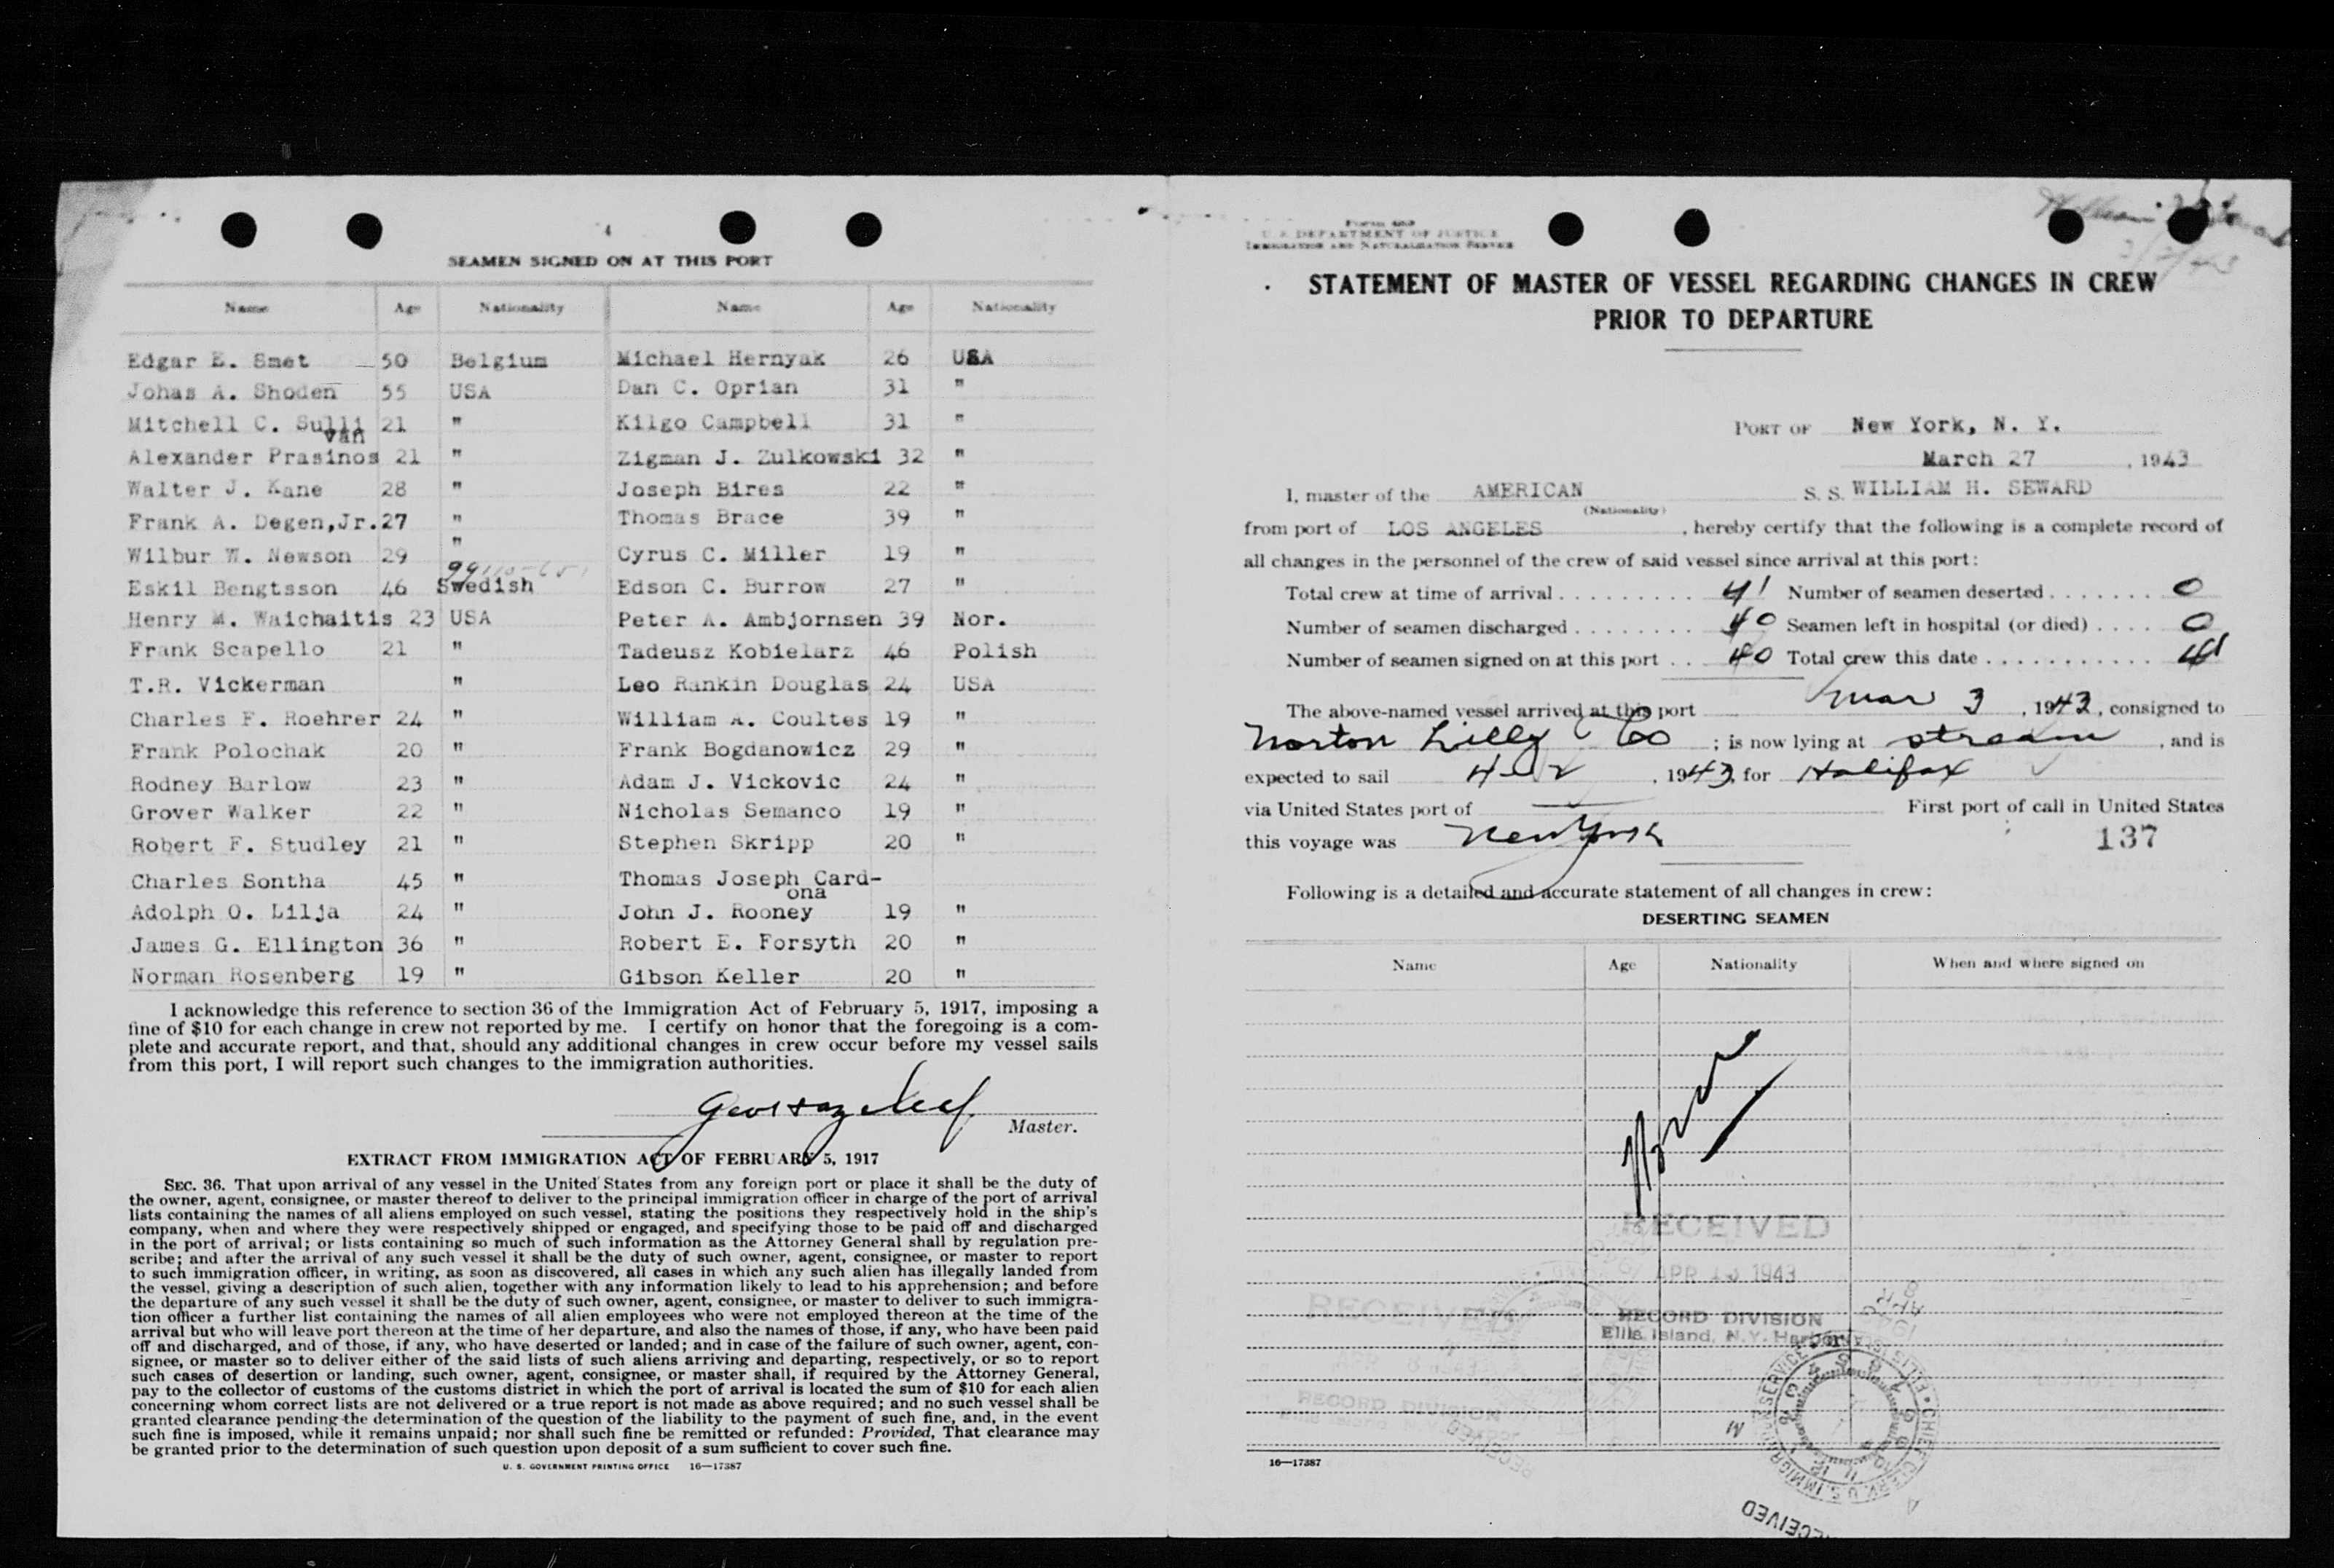 4
SEAMEN SIGNED ON AT THIS PORT
Name Age Nationality Name Age Nationality
Edgar E. Smet 50 Belgium Michael Hernyak 26 USA
Johas A. Shoden 55 USA Dan C. Oprian 31 "
Mitchell C. Sulli 21 " Kilgo Campbell 31 "
van
Alexander Prasinos 21 " Zigman J. Zulkowski 32 "
Walter J. Kane 28 " Joseph Bires 22 "
Frank A. Degen,Jr. 27 " Thomas Brace 39 "
Wilbur W. Newson 29 " Cyrus C. Miller 19 "
Eskil Bengtsson 46 Swedish Edson C. Burrow 27 "
Henry M. Waichaitis 23 USA Peter A. Ambjornsen 39 Nor.
Frank Scapello 21 " Tadeusz Kobielarz 46 Polish
T.R. Vickerman " Leo Rankin Douglas 24 USA
Charles F. Roehrer 24 " William A. Coultes 19 "
Frank Polochak 20 " Frank Bogdanowicz 29 "
Rodney Barlow 23 " Adam J. Vickovic 24 "
Grover Walker 22 " Nicholas Semanco 19 "
Robert F. Studley 21 " Stephen Skripp 20 "
Charles Sontha 45 " Thomas Joseph Card-
ona
Adolph O. Lilja 24 " John J. Rooney 19 "
James G. Ellington 36 " Robert E. Forsyth 20 "
Norman Rosenberg 19 " Gibson Keller 20 "
I acknowledge this reference to section 36 of the Immigration Act of February 5, 1917, imposing a
fine of $10 for each change in crew not reported by me. I certify on honor that the foregoing is a com-
plete and accurate report, and that, should any additional changes in crew occur before my vessel sails
from this port, I will report such changes to the immigration authorities.
Master.
EXTRACT FROM IMMIGRATION ACT OF FEBRUARY 5, 1917
SEC. 36. That upon arrival of any vessel in the United States from any foreign port or place it shall be the duty of
the owner, agent, consignee, or master thereof to deliver to the principal immigration officer in charge of the port of arrival
lists containing the names of all aliens employed on such vessel, stating the positions they respectively hold in the ship's
company, when and where they were respectively shipped or engaged, and specifying those to be paid off and discharged
in the port of arrival; or lists containing so much of such information as the Attorney General shall by regulation pre-
scribe; and after the arrival of any such vessel it shall be the duty of such owner, agent, consignee, or master to report
to such immigration officer, in writing, as soon as discovered, all cases in which any such alien has illegally landed from
the vessel, giving a description of such alien, together with any information likely to lead to his apprehension; and before
the departure of any such vessel it shall be the duty of such owner, agent, consignee, or master to deliver to such immigra-
tion officer a further list containing the names of all alien employees who were not employed thereon at the time of the
arrival but who will leave port thereon at the time of her departure, and also the names of those, if any, who have been paid
off and discharged, and of those, if any, who have deserted or landed; and in case of the failure of such owner, agent, con-
signee, or master so to deliver either of the said lists of such aliens arriving and departing, respectively, or so to report
such cases of desertion or landing, such owner, agent, consignee, or master shall, if required by the Attorney General,
pay to the collector of customs of the customs district in which the port of arrival is located the sum of $10 for each alien
concerning whom correct lists are not delivered or a true report is not made as above required; and no such vessel shall be
granted clearance pending the determination of the question of the liability to the payment of such fine, and, in the event
such fine is imposed, while it remains unpaid; nor shall such fine be remitted or refunded: Provided, That clearance may
be granted prior to the determination of such question upon deposit of a sum sufficient to cover such fine.
U. S. GOVERNMENT PRINTING OFFICE 16—17387
U. S. DEPARTMENT OF JUSTICE
IMMIGRATION AND NATURALIZATION SERVICE
STATEMENT OF MASTER OF VESSEL REGARDING CHANGES IN CREW
PRIOR TO DEPARTURE
PORT OF New York, N. Y.
March 27, 1943
I, master of the AMERICAN S. S. WILLIAM H. SEWARD
(Nationality)
from port of LOS ANGELES, hereby certify that the following is a complete record of
all changes in the personnel of the crew of said vessel since arrival at this port:
Total crew at time of arrival 41 Number of seamen deserted 0
Number of seamen discharged 40 Seamen left in hospital (or died) 0
Number of seamen signed on at this port 40 Total crew this date 41
The above-named vessel arrived at this port Mar 3, 1943, consigned to
Norton Lilly & Co; is now lying at stream, and is
expected to sail 4-2, 1943, for Halifax
via United States port of — First port of call in United States
this voyage was New York
137
Following is a detailed and accurate statement of all changes in crew:
DESERTING SEAMEN
Name Age Nationality When and where signed on
None
RECEIVED
APR 13 1943
RECORD DIVISION
Ellis Island, N.Y. Harbor
RECEIVED
RECORD DIVISION
RECEIVED
16—17387
RECEIVED